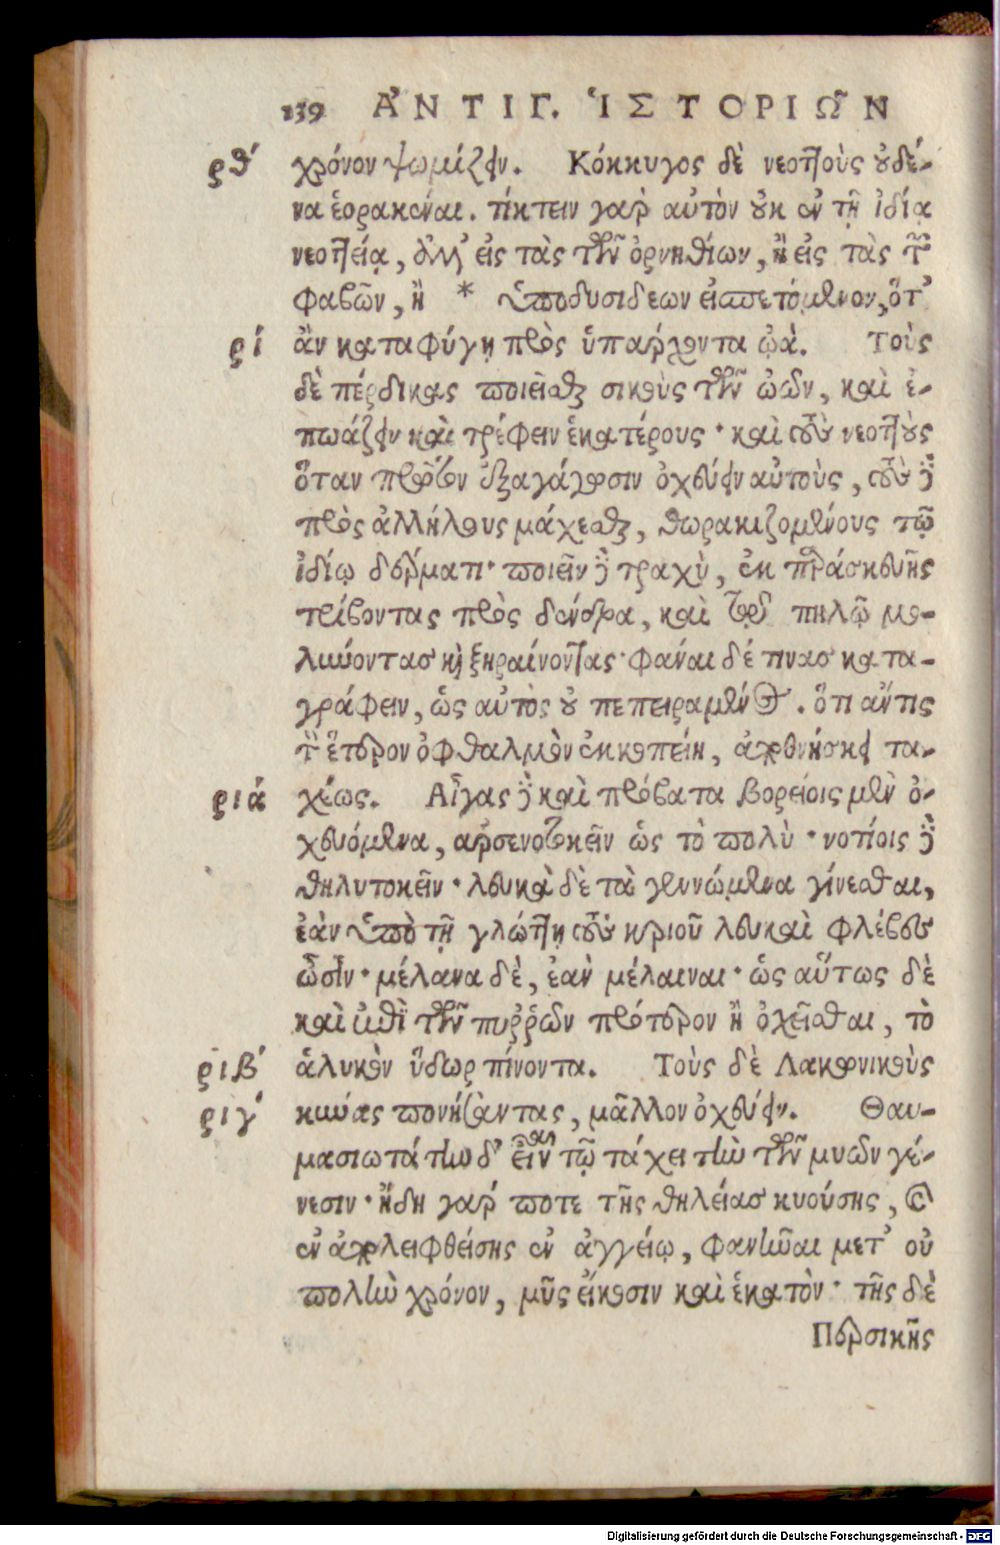 139 ἈΝΤΙΓ. ἹΣΤΟΡΙΩ͂Ν
ρθ´ χρόνον ψωμίζειν. Κόκκυγος δὲ νεοττοὺς οὐδέ-
να ἑορακέναι. τίκτειν γὰρ αὐτὸν οὐκ ἐν τῇ ἰδίᾳ
νεοττείᾳ, ἀλλ' εἰς τὰς τῶν ὀρνηθίων, ἢ εἰς τὰς τῶν
φαβῶν, ἢ * ὑποδυσιδεων εἰσπετόμενον, ὅτ'
ρί ἂν καταφύγῃ πρὸς ὑπάρχοντα ᾠά. Τοὺς
δὲ πέρδικας ποιεῖσθαι σικοὺς τῶν ὠῶν, καὶ ἐ-
πωάζειν καὶ τρέφειν ἑκατέρους· καὶ τοὺς νεοττοὺς
ὅταν πρῶτον ἐξαγάγωσιν ὀχεύειν αὐτοὺς, τοὺς δὲ
πρὸς ἀλλήλους μάχεσθαι, θωρακιζομένους τῷ
ἰδίῳ δέρματι· ποιεῖν δὲ τραχὺ, ἐκ παρασκευῆς
τρίβοντας πρὸς δένδρα, καὶ τῷ πηλῷ μο-
λύνοντας καὶ ξηραίνοντας· φάναι δέ τινας κατα-
γράφειν, ὡς αὐτὸς οὐ πεπειραμένος. ὅτι ἄν τις
τὸν ἕτερον ὀφθαλμὸν ἐκκοπείη, ἀποθνήσκει τα-
ριά χέως. Αἶγας δὲ καὶ πρόβατα βορείοις μὲν ὀ-
χευόμενα, ἀρσενοτοκεῖν ὡς τὸ πολὺ· νοτίοις δὲ
θηλυτοκεῖν· λευκὰ δὲ τὰ γεννώμενα γίνεσθαι,
ἐὰν ὑπὸ τῇ γλώττῃ τοῦ κριοῦ λευκαὶ φλέβες
ὦσιν· μέλανα δὲ, ἐὰν μέλαιναι· ὡς αὕτως δὲ
καὶ ἐπὶ τῶν πυῤῥῶν πρότερον ἢ ὀχεῖσθαι, τὸ
ριβ´ ἁλυκὸν ὕδωρ πίνοντα. Τοὺς δὲ Λακωνικοὺς
ριγ´ κύνας πονήσαντας, μᾶλλον ὀχεύειν. Θαυ-
μασιωτάτην δ' εἶναι τῷ τάχει τὴν τῶν μυῶν γέ-
νεσιν· ἤδη γάρ ποτε τῆς θηλείας κυούσης, καὶ
ἐναπολειφθείσης ἐν ἀγγείῳ, φανῆναι μετ' οὐ
πολὺν χρόνον, μῦς εἴκοσιν καὶ ἑκατὸν· τῆς δὲ
Περσικῆς
Digitalisierung gefördert durch die Deutsche Forschungsgemeinschaft - DFG